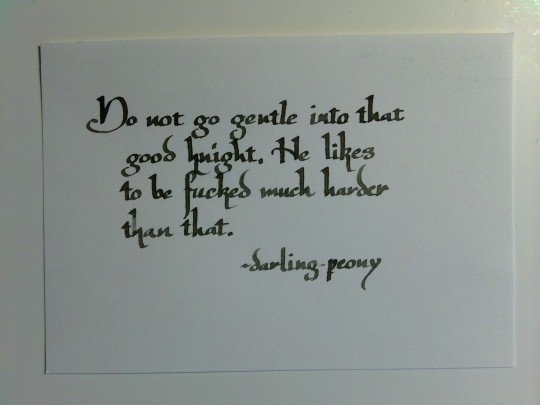 Do not go gentle into that
good knight. He likes
to be fucked much harder
than that.
-darling-peony